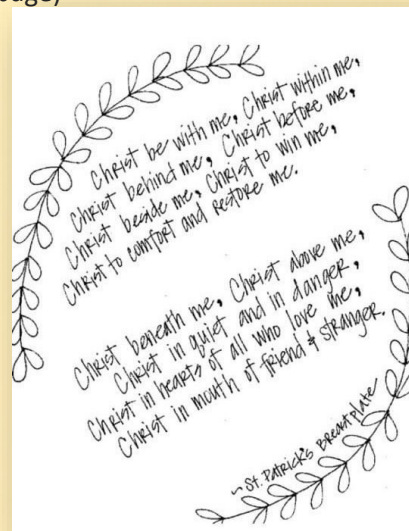 Christ be with me, Christ within me,
Christ behind me, Christ before me,
Christ beside me, Christ to win me,
Christ to comfort and restore me.
Christ beneath me, Christ above me,
Christ in quiet and in danger,
Christ in hearts of all who love me,
Christ in mouth of friend & stranger.
~St. Patrick's Breastplate